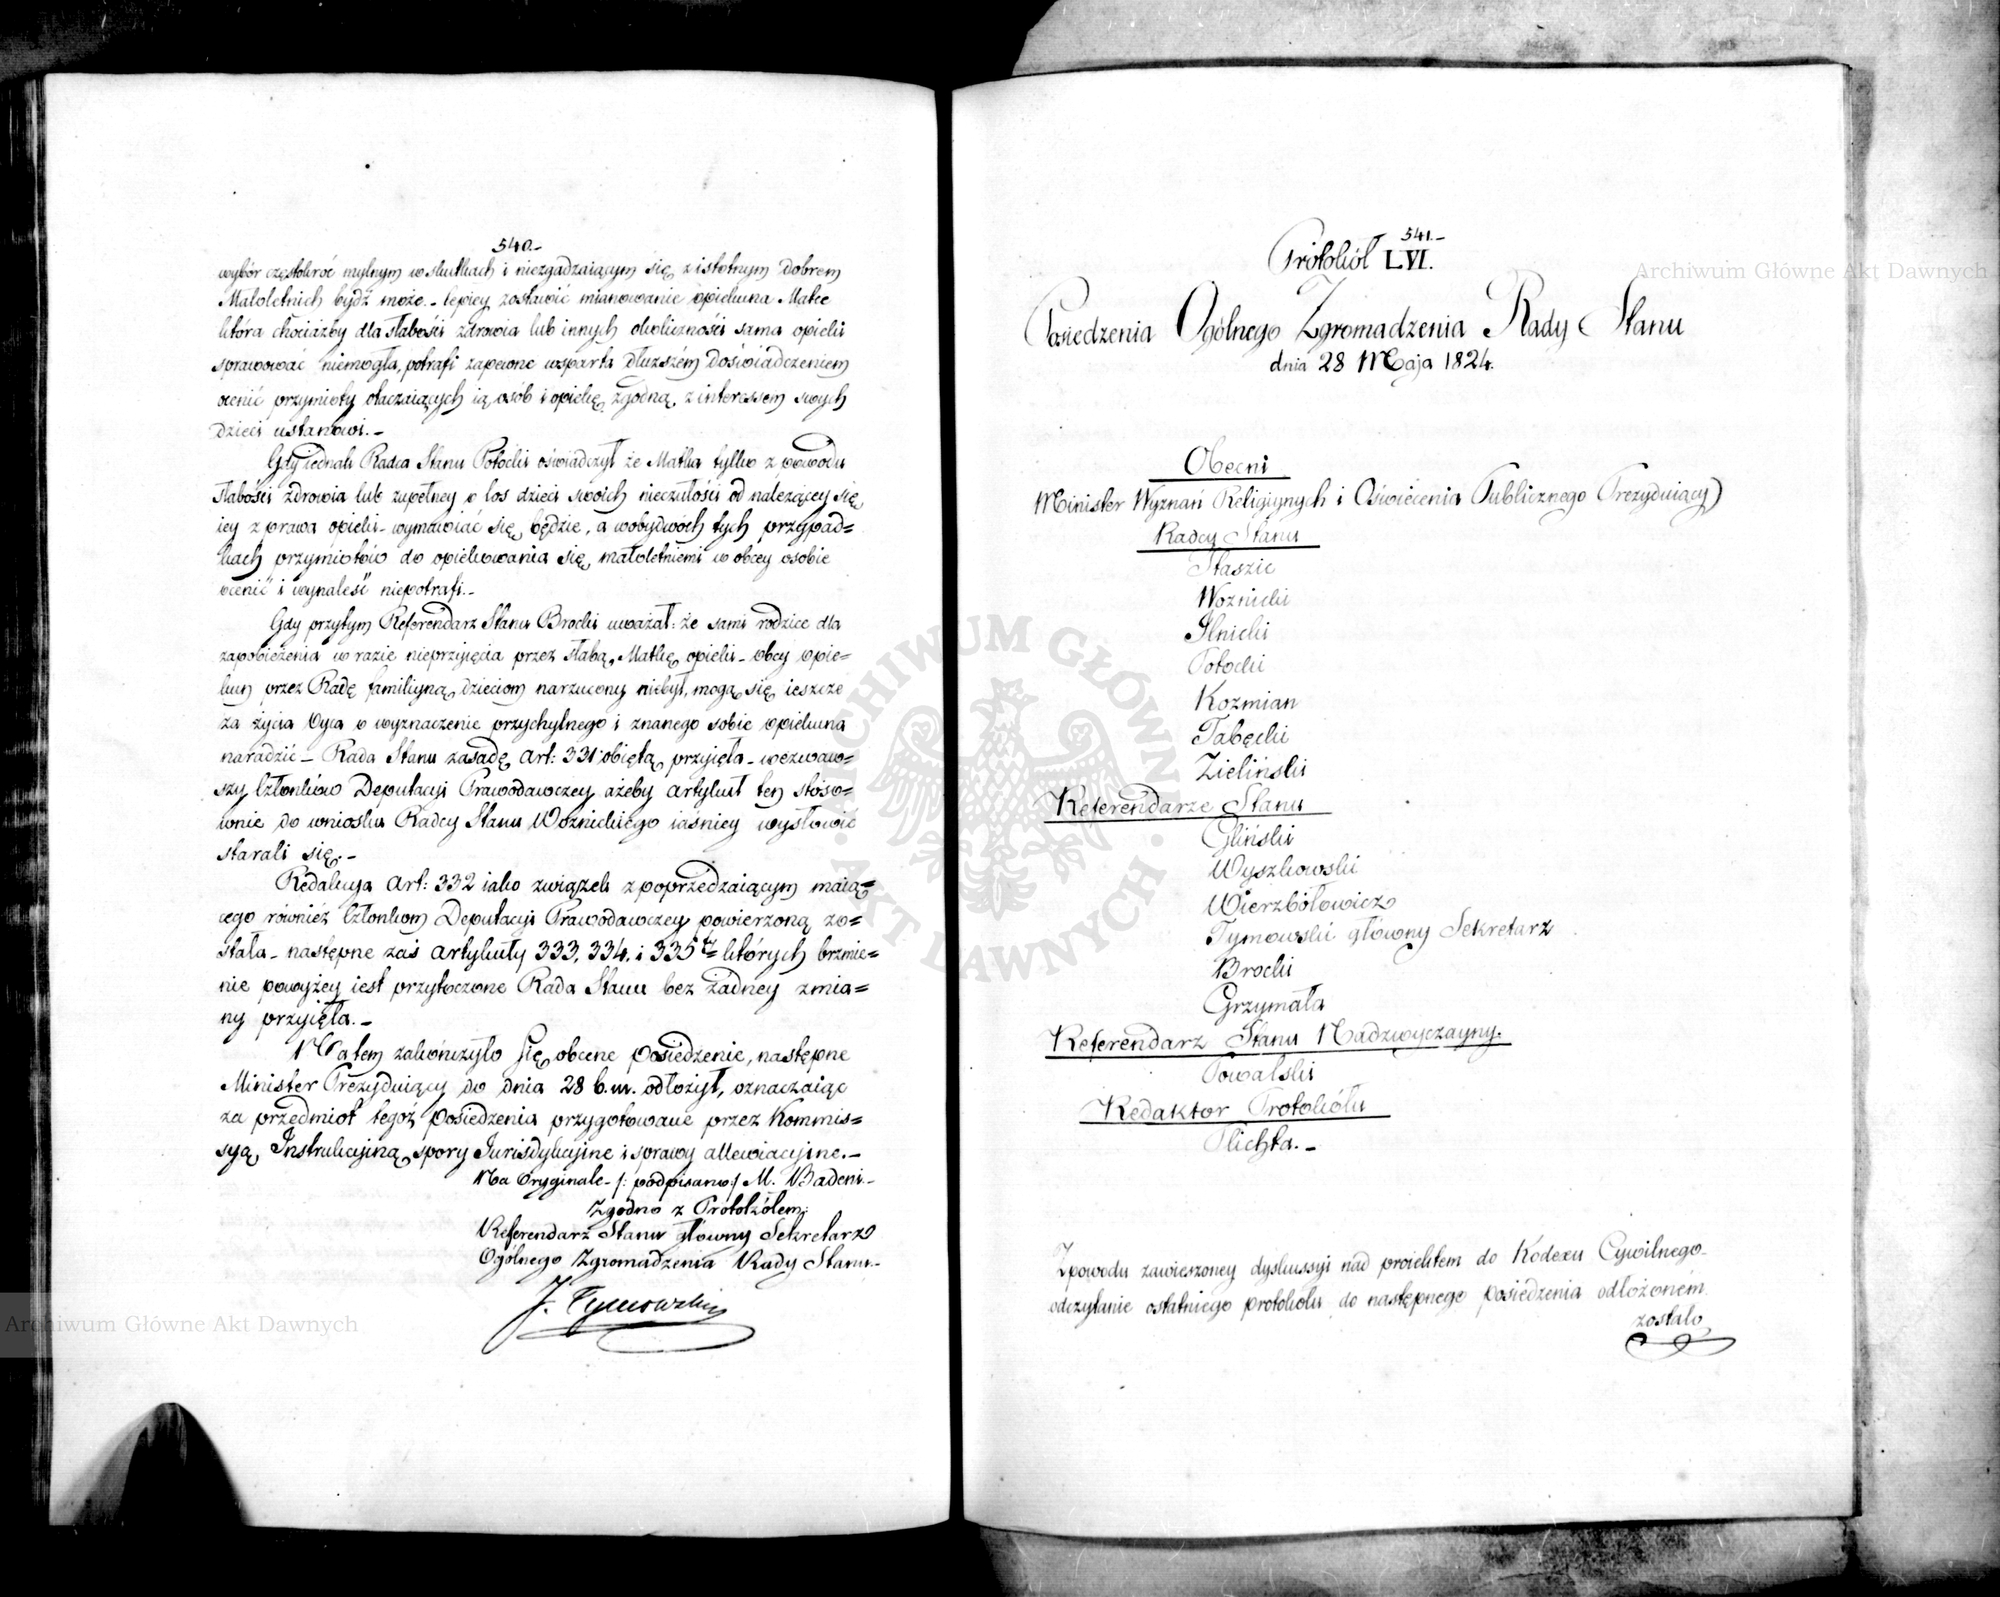 540.-
wybór częstokroć mylnym w skutkach i niezgadzaiącym się z istotnym dobrem
Małoletnich bydź może. - lepiey zostawić mianowanie opiekuna Matce
która chociażby dla słabości zdrowia lub innych okoliczności sama opieki
sprawować niemogła, potrafi zapewne wsparta dłuzszém doświadczeniem
ocenić przymioty otaczaiących ią osób i opiekę zgodną z interessem swych
dzieci ustanowi. -
Gdy iednak Radca Stanu Potocki oświadczył że Matka tylko z powodu
słabości zdrowia lub zupełney o los dzieci swoich nieczułości od należącey się
iey z prawa opieki - wymawiać się będzie, a w obydwóch tych przypad=
kach przymiotów do opiekowania się małoletniemi w obcey osobie
ocenić i wynaleść niepotrafi. -
Gdy przytym Referendarz Stanu Brocki uważał: że sami rodzice dla
zapobieżenia w razie nieprzyięcia przez słabą Matkę opieki - obcy opie=
kun przez Radę familiyną dzieciom narzucony niebył, mogą się ieszcze
za życia Oyca o wyznaczenie przychylnego i znanego sobie opiekuna
naradzić - Rada Stanu zasadę Art: 331 obiętą przyięła - wezwaw=
szy Członków Deputacyi Prawodawczey ażeby artykuł ten stóso=
wnie do wniosku Radcy Stanu Woznickiego iaśniey wysłowić
starali się. -
Redakcya Art: 332 iako związek z poprzedzaiącym maią=
cego również Członkom Deputacyi Prawodawczey powierzoną zo=
stała - następne zaś artykuły 333, 334, i 335ty których brzmie=
nie powyżey iest przytoczone Rada Stanu bez żadney zmia=
ny przyięła. -
Na tem zakończyło się obecne posiedzenie, następne
Minister Prezyduiący do dnia 28 b. m. odłożył, oznaczaiąc
za przedmiot tegoż posiedzenia przygotowane przez Kommis=
syą Instrukcyiną spory Jurisdykcyine i sprawy allewiacyine. -
Na Oryginale - /: podpisano:/ M. Badeni. -
Zgodno z Protokółem:
Referendarz Stanu główny Sekretarz
Ogólnego Zgromadzenia Rady Stanu. -
J. Tymowski
541.-
Protokół LVI.
Posiedzenia Ogólnego Zgromadzenia Rady Stanu
dnia 28 Maja 1824.
Obecni
Minister Wyznań Religiynych i Oświécenia Publicznego Prezyduiący
Radcy Stanu
Staszic
Woznicki
Ilnicki
Potocki
Kozmian
Tabęcki
Zieliński
Referendarze Stanu
Gliński
Wyszkowski
Wierzbółowicz
Tymowski główny Sekretarz
Brocki
Grzymała
Referendarz Stanu Nadzwyczayny.
Powalski
Redaktor Protokółu
Plichta. -
Z powodu zawieszoney dyskussyi nad proiektem do Kodexu Cywilnego
odczytanie ostatniego protokołu do następnego posiedzenia odłożoném
zostało
Archiwum Główne Akt Dawnych
Archiwum Główne Akt Dawnych
ARCHIWUM GŁÓWNE · AKT DAWNYCH ·